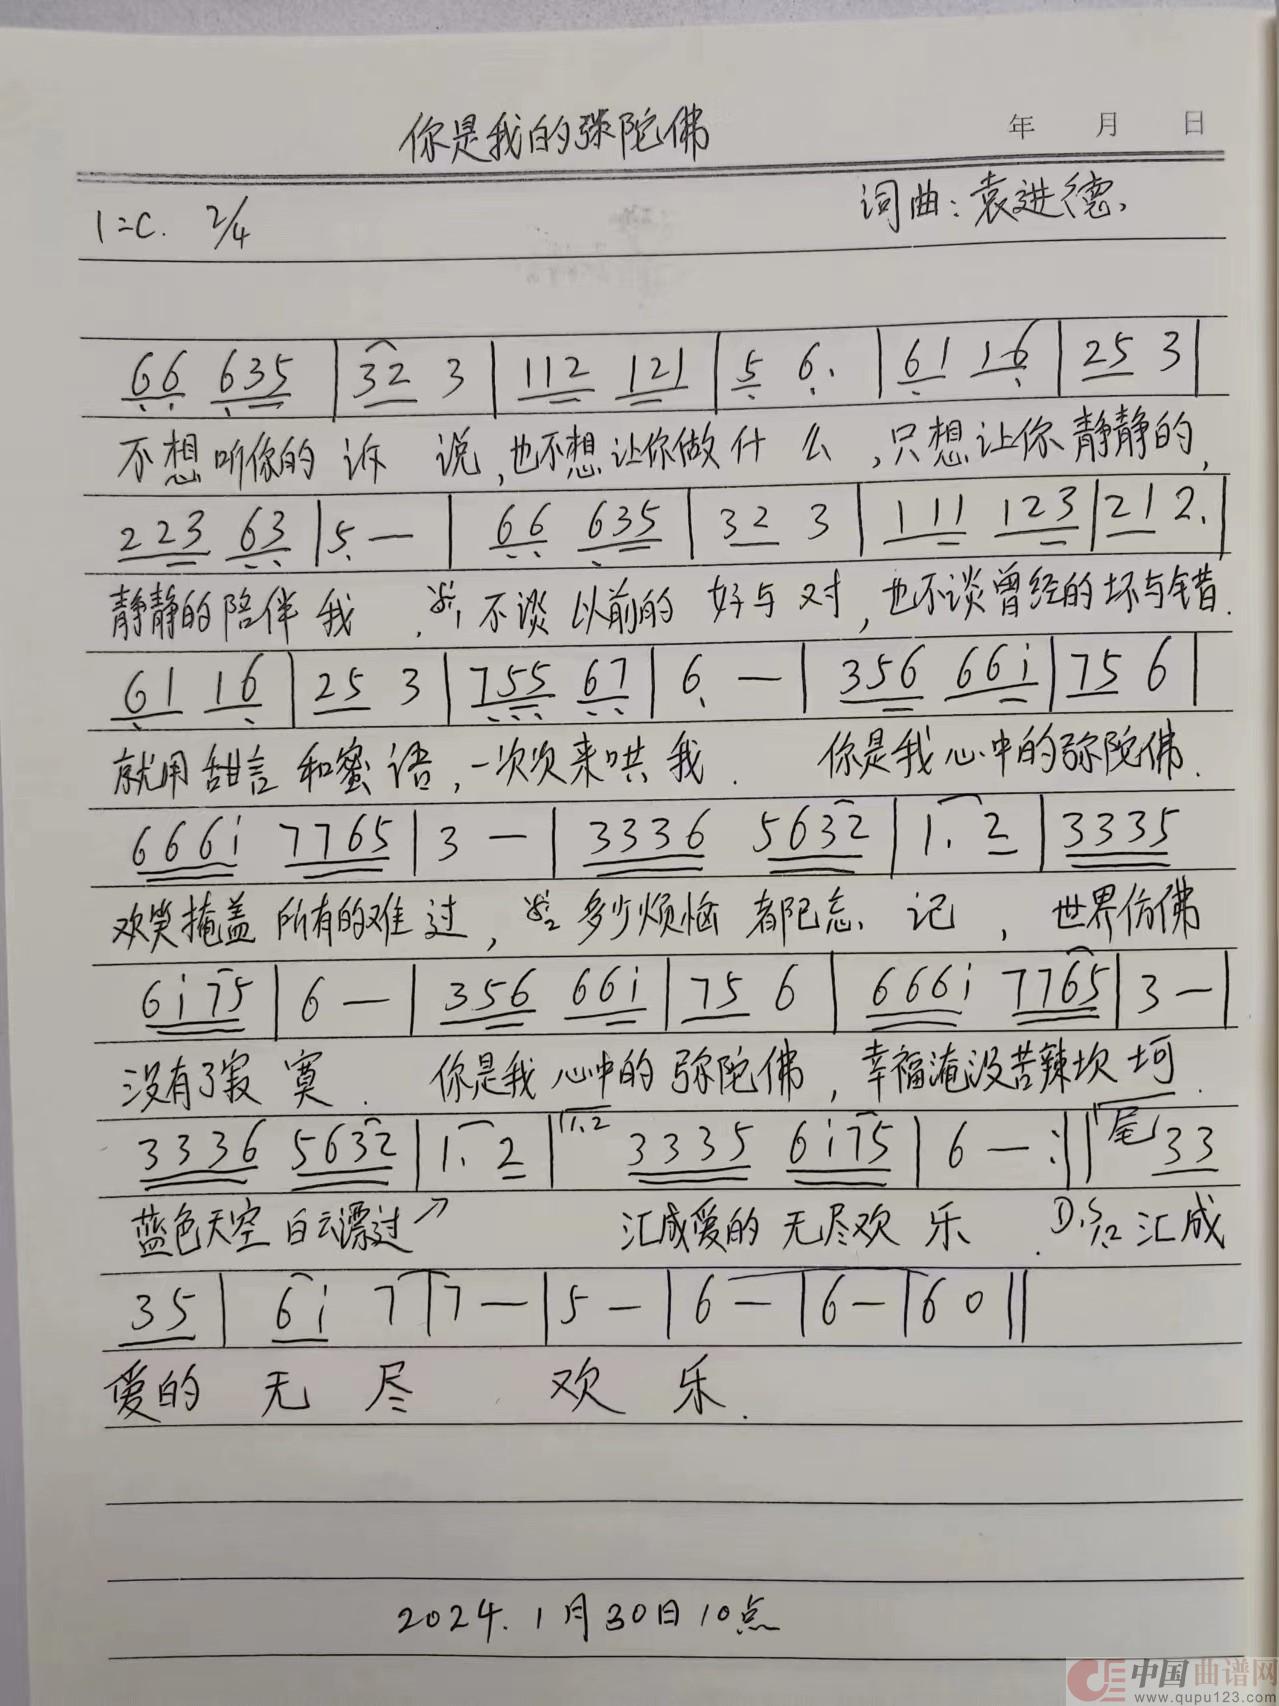 你是我的弥陀佛
年 月 日
1=C. 2/4 词曲:袁进德.
66 635 | 32 3 | 112 121 | 5 6. | 61 16 | 25 3 |
不想听你的诉 说,也不想让你做什么,只想让你静静的,
223 63 | 5 — | 66 635 | 32 3 | 111 123 | 21 2. |
静静的陪伴我 .𝄋1 不谈以前的 好与对,也不谈曾经的坏与错.
61 16 | 25 3 | 755 67 | 6 — | 356 66i | 75 6 |
就用甜言和蜜语,一次次来哄我. 你是我心中的弥陀佛.
666i 7765 | 3 — | 3336 5632 | 1. 2 | 3335
欢笑掩盖所有的难过, 𝄋2 多少烦恼都已忘记, 世界仿佛
6i75 | 6 — | 356 66i | 75 6 | 666i 7765 | 3 — |
没有了寂寞. 你是我心中的弥陀佛,幸福淹没苦辣坎坷.
3336 5632 | 1. 2 | 1.2 3335 6i75 | 6 — :|| 尾 33
蓝色天空白云漂过↗ 汇成爱的无尽欢乐. D.S1.2 汇成
35 | 6i 7 | 7 — | 5 — | 6 — | 6 — | 6 0 ||
爱的 无 尽 欢 乐.
2024.1月30日10点
中国曲谱网
www.qupu123.com